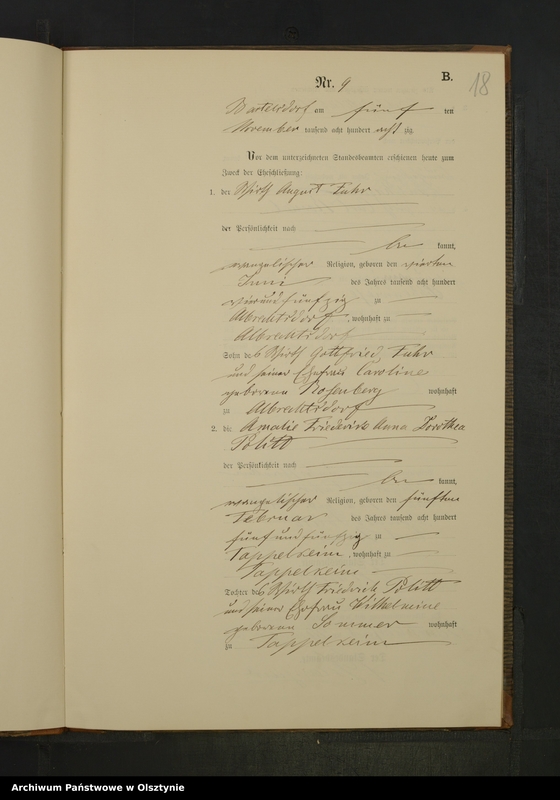 B.
18
Nr. 9
Bartelsdorf am fünf ten
November tausend acht hundert acht zig.
Vor dem unterzeichneten Standesbeamten erschienen heute zum
Zweck der Eheschließung:
1. der Wirth August Fuhr
der Persönlichkeit nach
be kannt,
evangelischer Religion, geboren den vierten
Juni des Jahres tausend acht hundert
vierundfünfzig zu
Albrechtsdorf, wohnhaft zu
Albrechtsdorf
Sohn des Wirth Gottfried Fuhr
und seiner Ehefrau Caroline
geborene Rosenberg wohnhaft
zu Albrechtsdorf
2. die Amalie Friederike Anna Dorothea
Politt
der Persönlichkeit nach
be kannt,
evangelischer Religion, geboren den fünften
Februar des Jahres tausend acht hundert
fünf und fünfzig zu
Tappelkeim, wohnhaft zu
Tappelkeim
Tochter des Wirth Friedrich Politt
und seiner Ehefrau Wilhelmine
geborene Sommer wohnhaft
zu Tappelkeim
Archiwum Państwowe w Olsztynie